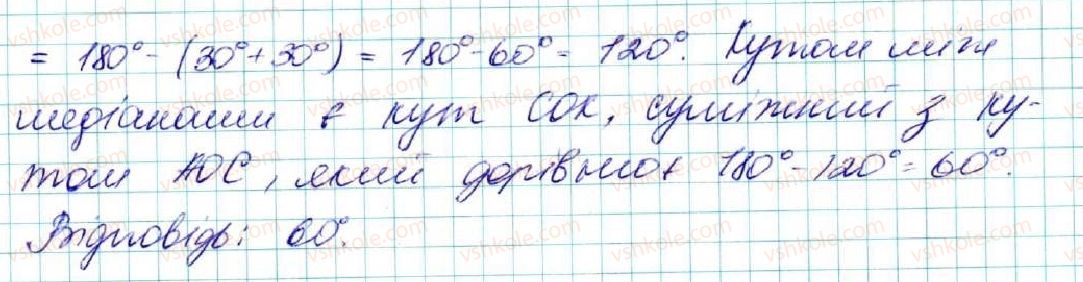 = 180° - (30° + 30°) = 180° - 60° = 120°. Кутом між
медіанами є кут COK, суміжний з ку-
том AOC, який дорівнює 180° - 120° = 60°.
Відповідь: 60°.